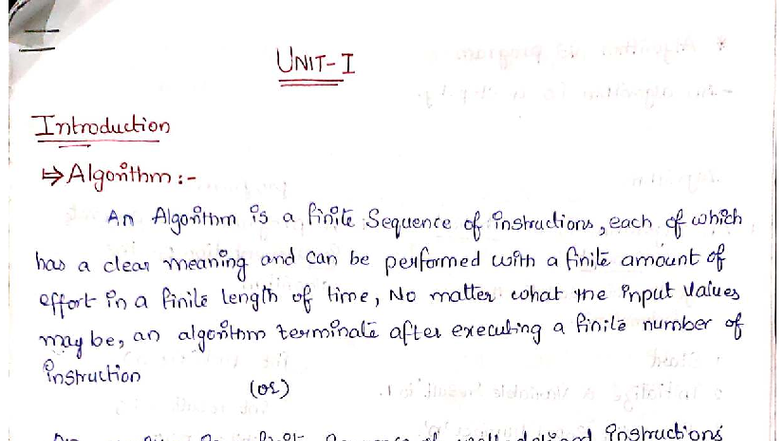 UNIT-I
Introduction
⇒ Algorithm :-
An Algorithm is a finite Sequence of instructions, each of which
has a clear meaning and can be performed with a finite amount of
effort in a finite length of time, No matter what the input values
may be, an algorithm terminate after executing a finite number of
instruction
(or)
instructions